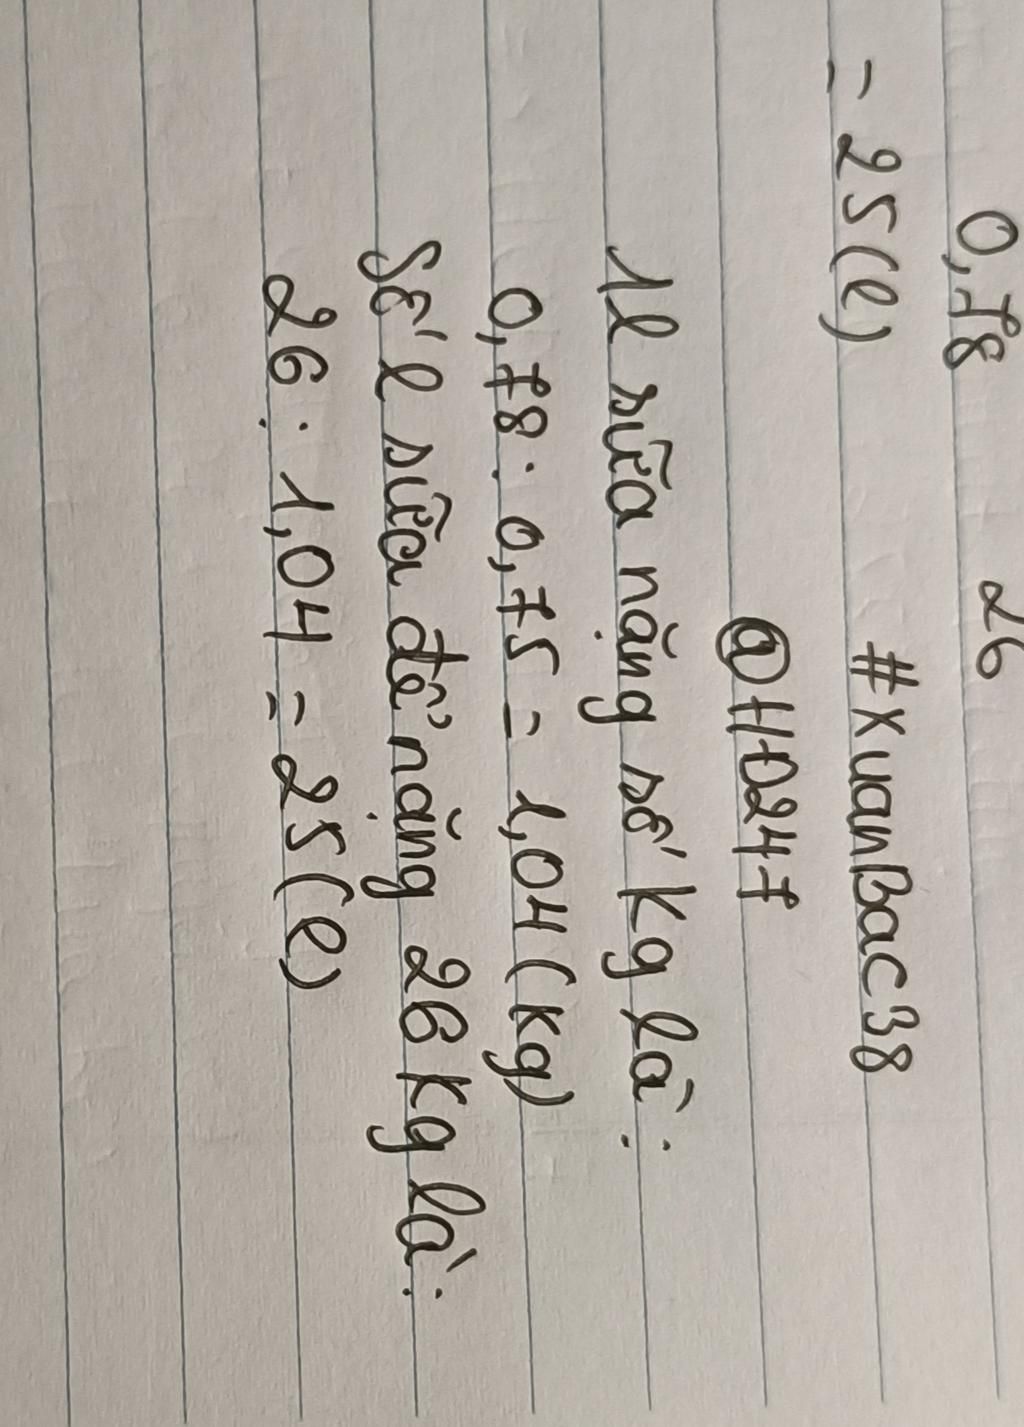 0,78 26
= 25(l)
#XuanBac38
@HD247
1l sữa nặng số kg là:
0,78 : 0,75 = 1,04(kg)
Số l sữa để nặng 26kg là:
26 : 1,04 = 25(l)